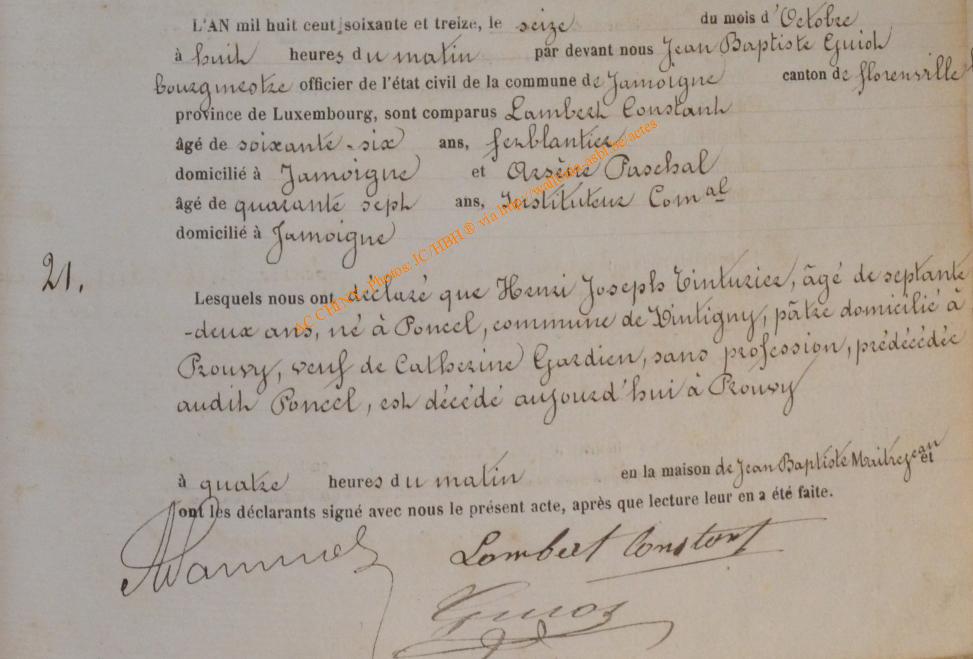 L'AN mil huit cent soixante et treize, le seize du mois d'Octobre
à huit heures du matin par devant nous Jean Baptiste Guiot
bourgmestre officier de l'état civil de la commune de Jamoigne canton de florenville
province de Luxembourg, sont comparus Lambert Constant
âgé de soixante-six ans, ferblantier
domicilié à Jamoigne et Arsène Paschal
âgé de quarante sept ans, Instituteur Comal
domicilié à Jamoigne
AC CHINY - Photos: JC/HBH ® via http://wallonia.asbl.be/actes
21.
Lesquels nous ont déclaré que Henri Joseph Tinturier, âgé de septante
-deux ans, né à Poncel, commune de Tintigny, pâtre domicilié à
Prouvy, veuf de Catherine Gardien, sans profession, prédécédée
audit Poncel, est décédé aujourd'hui à Prouvy
à quatre heures du matin en la maison de Jean Baptiste Maitrejean et
ont les déclarants signé avec nous le présent acte, après que lecture leur en a été faite.
Lambert Constant
Guiot